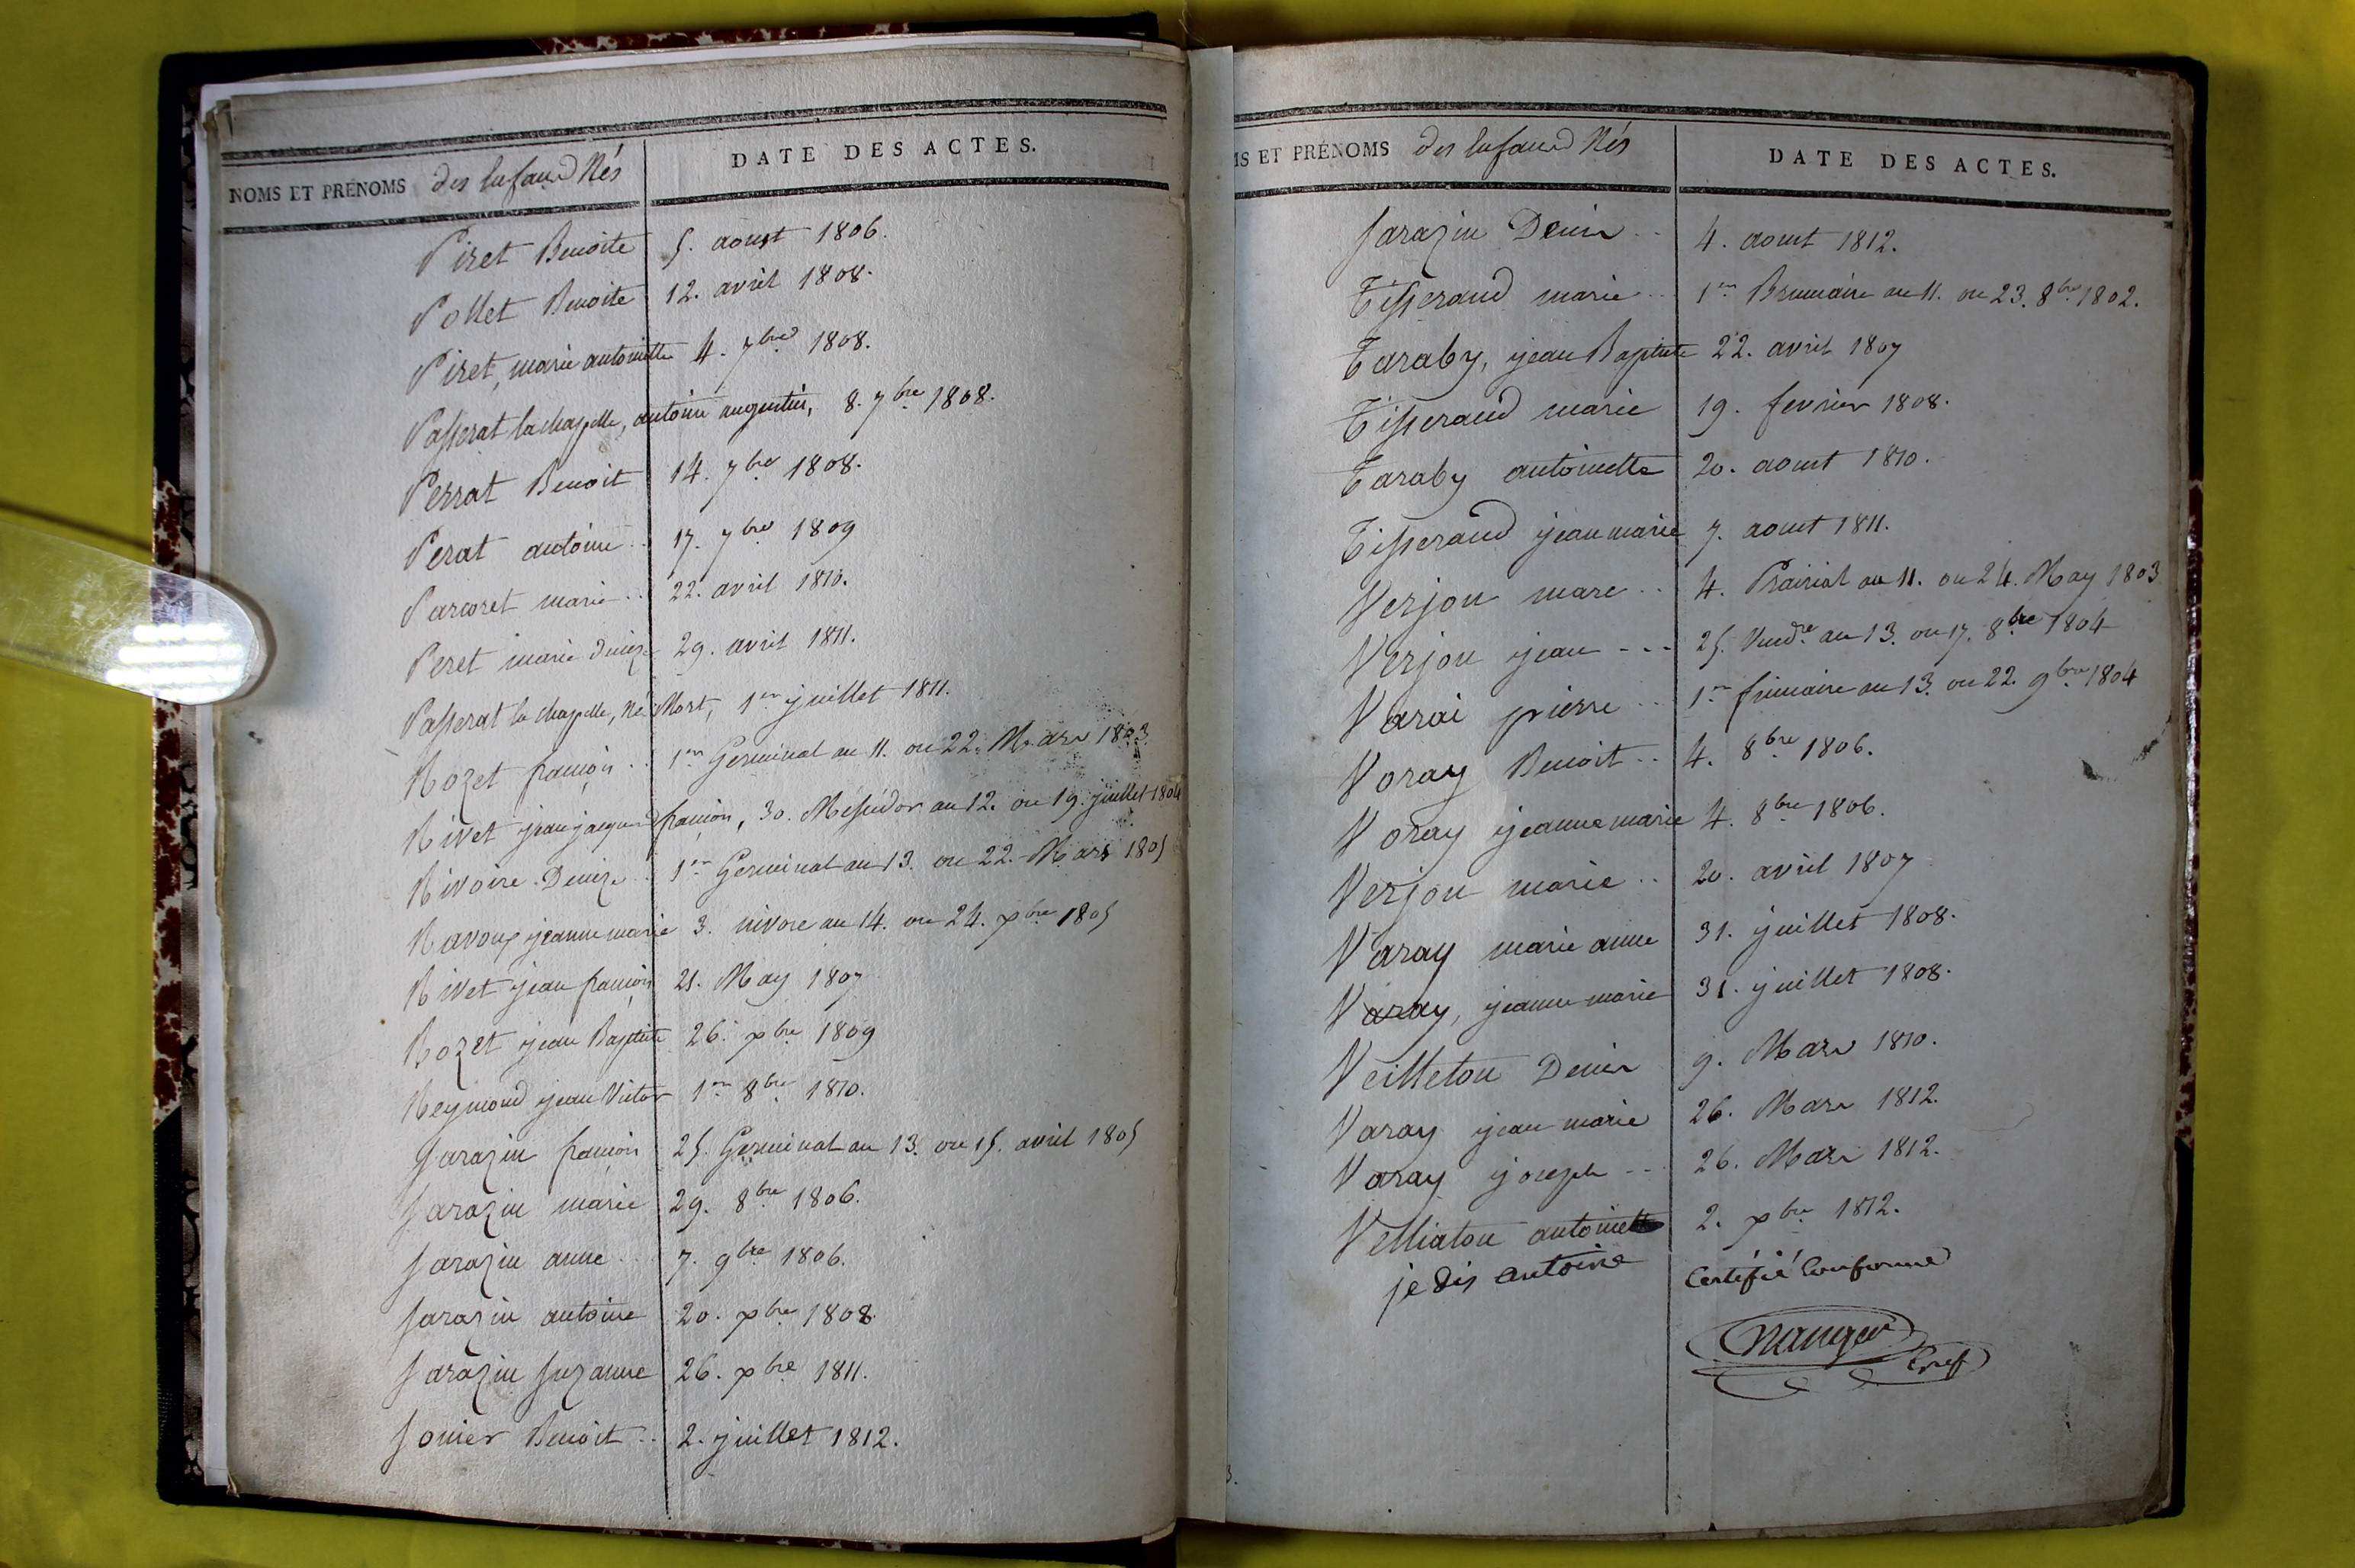 NOMS ET PRÉNOMS des Enfans Nés DATE DES ACTES.
Piret Benoite 5. aoust 1806.
Pollet Benoite 12. avril 1808.
Piret, marie antoinette 4. 7bre 1808.
Passerat lachapelle, antoine augustin, 8. 7bre 1808.
Perrat Benoit 14. 7bre 1808.
Perat antoine .. 17. 7bre 1809
Parcoret marie .. 22. avril 1810.
Peret marie Denize 29. avril 1811.
Passerat la chapelle, Né Mort, 1er juillet 1811.
Rozet françois .. 1er Germinal an 11. ou 22. Mars 1803
Rivet jean jacques françois, 30. Messidor an 12. ou 19. juillet 1804
Rivoire Denize .. 1er Germinal an 13. ou 22. Mars 1805
Ravoux jeanne marie 3. nivose an 14. ou 24. xbre 1805
Rivet jean françois 21. May 1807
Rozet jean Baptiste 26. xbre 1809
Reymond jean Victor 1er 8bre 1810.
Sarazin françois 25. Germinal an 13. ou 15. avril 1805
Sarazin marie 29. 8bre 1806.
Sarazin anne .. 7. 9bre 1806.
Sarazin antoine 20. xbre 1808.
Sarazin Suzanne 26. xbre 1811.
Sonier Benoit .. 2. juillet 1812.
MS ET PRÉNOMS des Enfans Nés DATE DES ACTES.
Sarazin Denis .. 4. aout 1812.
Tisserand marie .. 1er Brumaire an 11. ou 23. 8bre 1802.
Taraby, jean Baptiste 22. avril 1807
Tisserand marie 19. fevrier 1808.
Taraby antoinette 20. aout 1810.
Tisserand jean marie 7. aout 1811.
Verjou marc .. 4. Prairial an 11. ou 24. May 1803
Verjou jean --- 25. Vendre an 13. ou 17. 8bre 1804
Varai pierre .. 1er frimaire an 13. ou 22. 9bre 1804
Voray Benoit .. 4. 8bre 1806.
Voray jeanne marie 4. 8bre 1806.
Verjou marie .. 20. avril 1807
Varay marie anne 31. juillet 1808.
Varay, jeanne marie 31. juillet 1808.
Veilleton Denis 9. Mars 1810.
Varay jean marie 26. Mars 1812.
Varay joseph -- 26. Mars 1812.
Velliaton antoinette 2. xbre 1812.
je dis antoine Certifié Conforme
Gref